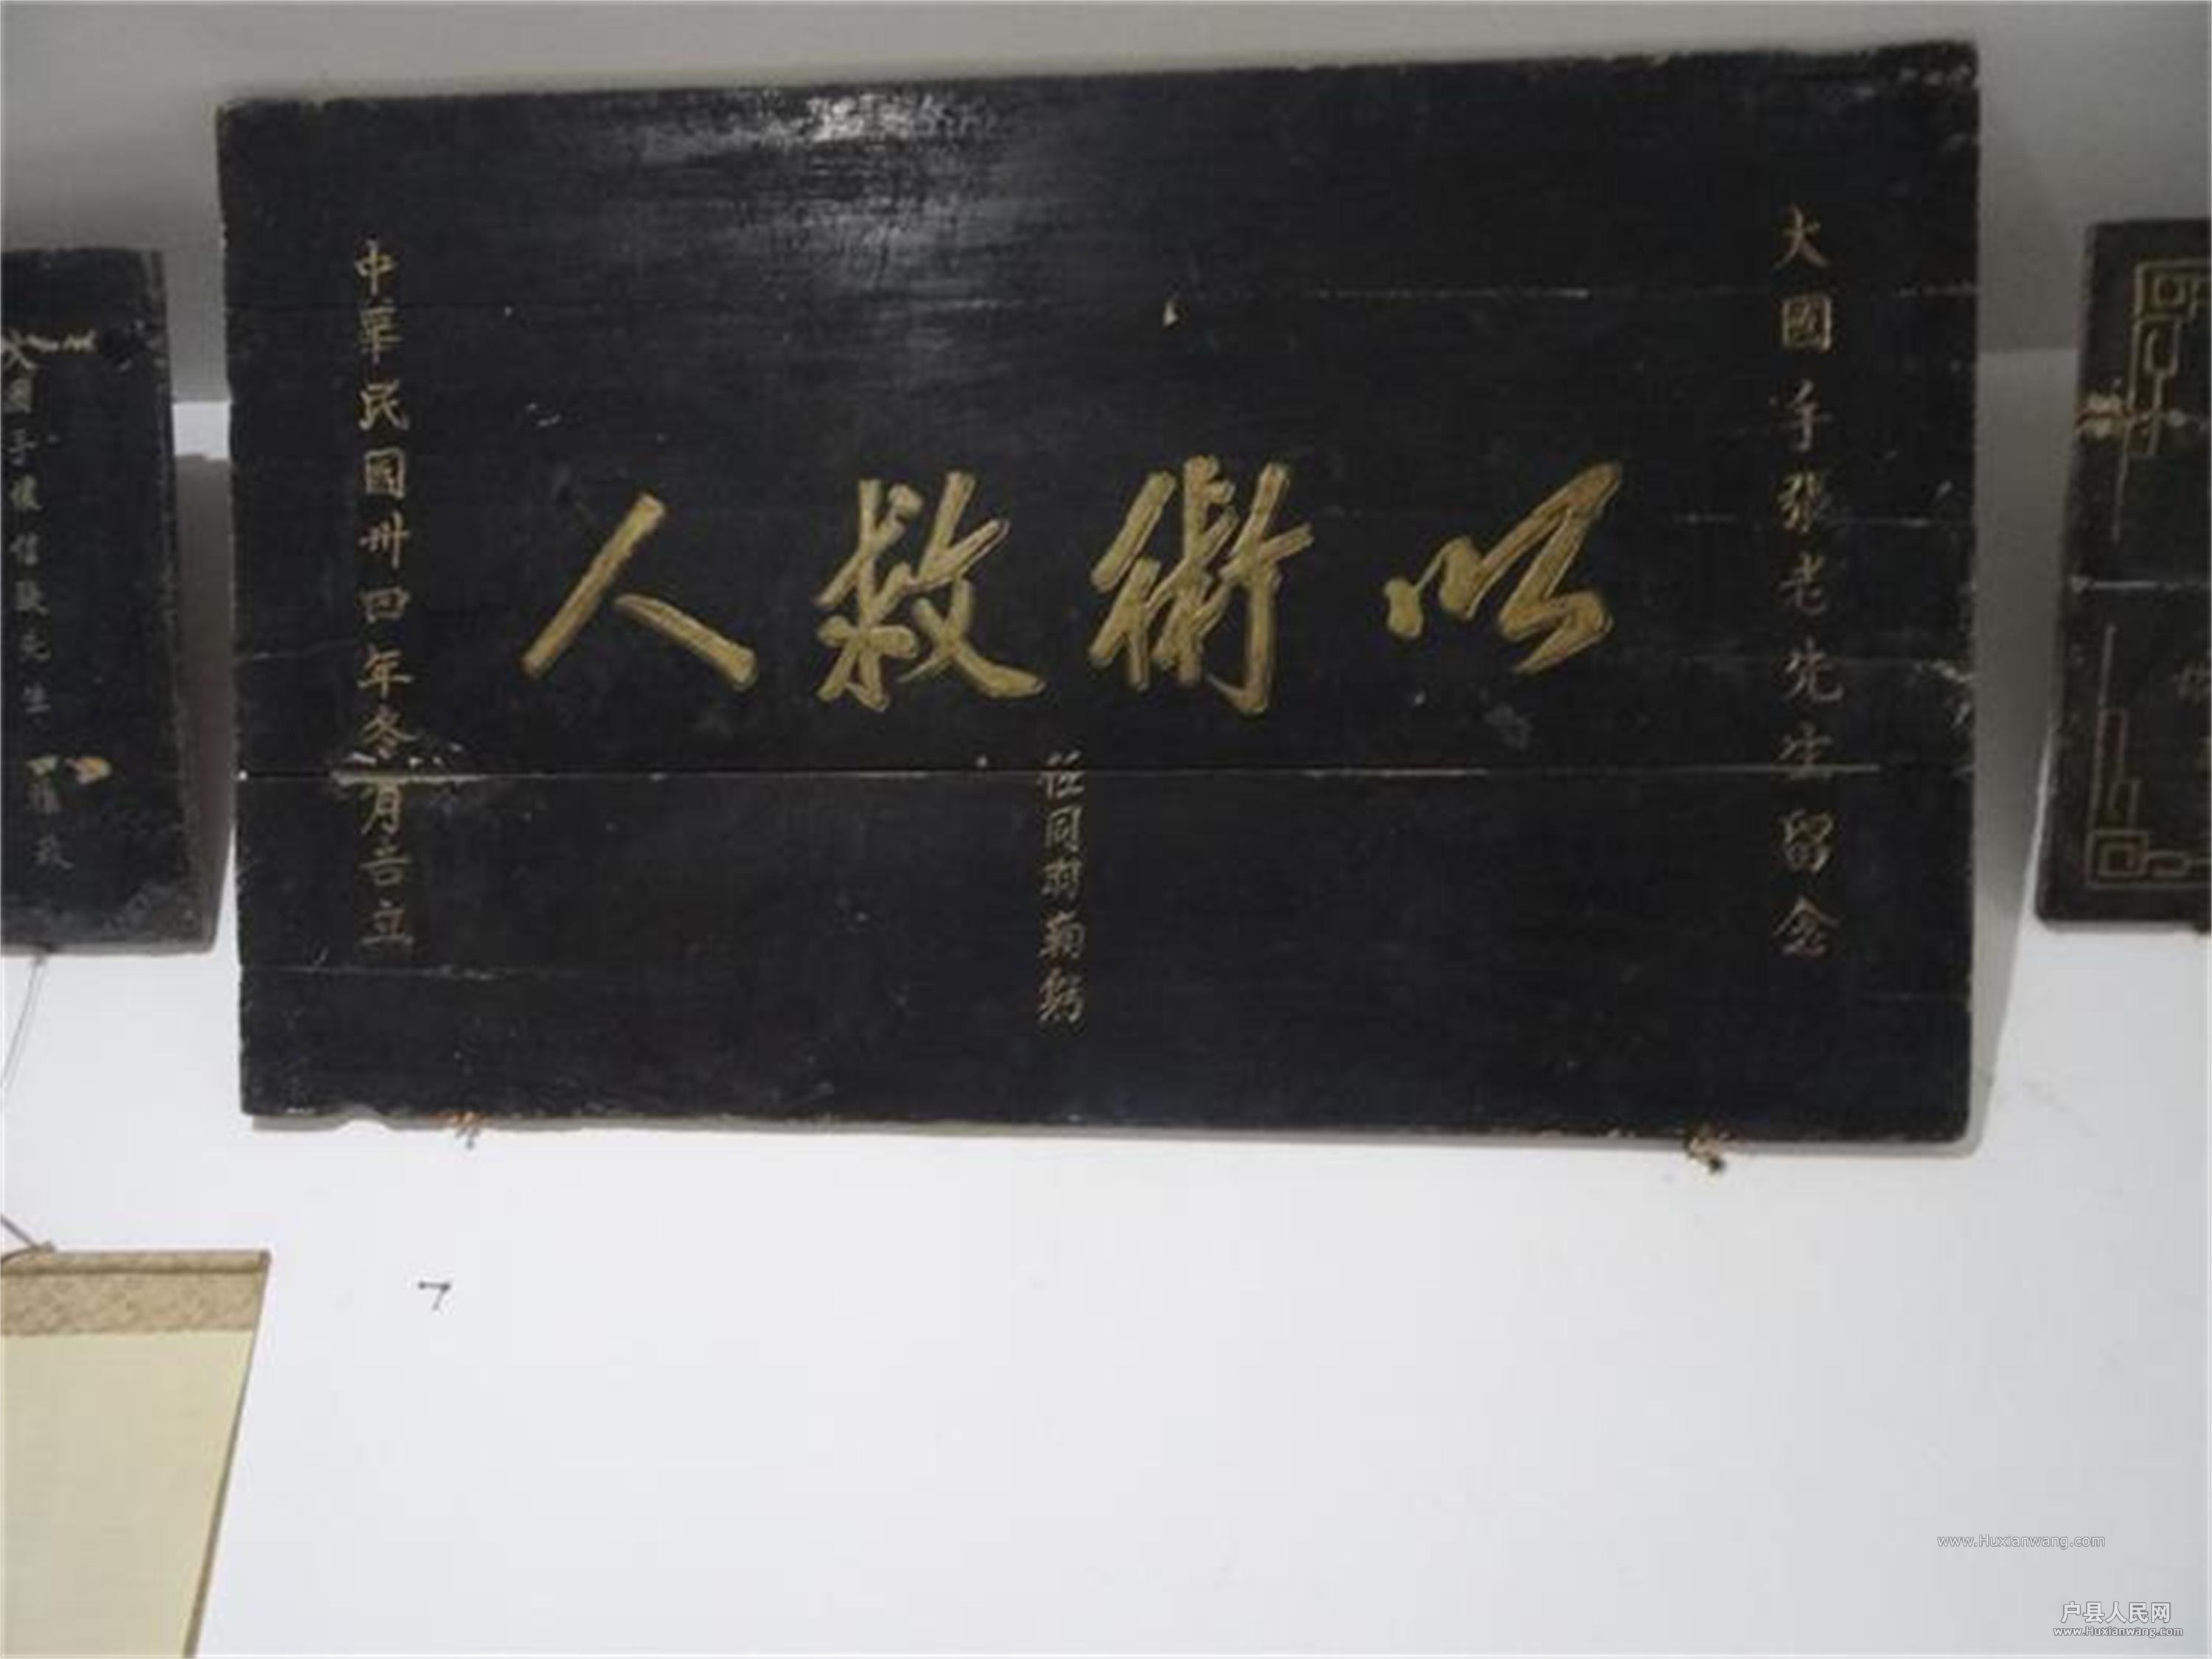 大國手張老先生留念
以術救人
任同財鞠躬
中華民國卅四年冬月吉立
大國手懷信張先生
www.Huxianwang.com
户县人民网
www.Huxianwang.com